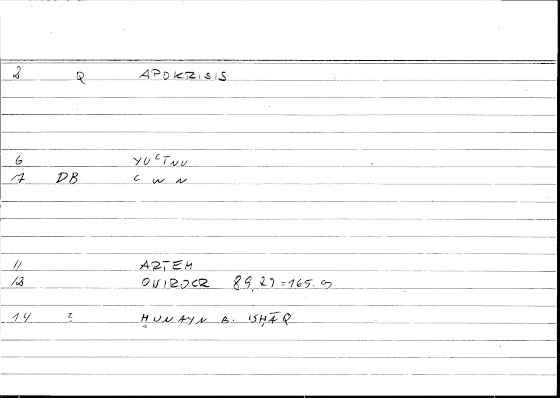 3 Q APOKRISIS
6 YUCTNU
7 DB C W N
11 ARTEM
13 OVIROCR 89,27=165.9
14 ? ḤUNAYN B. ISḤĀQ